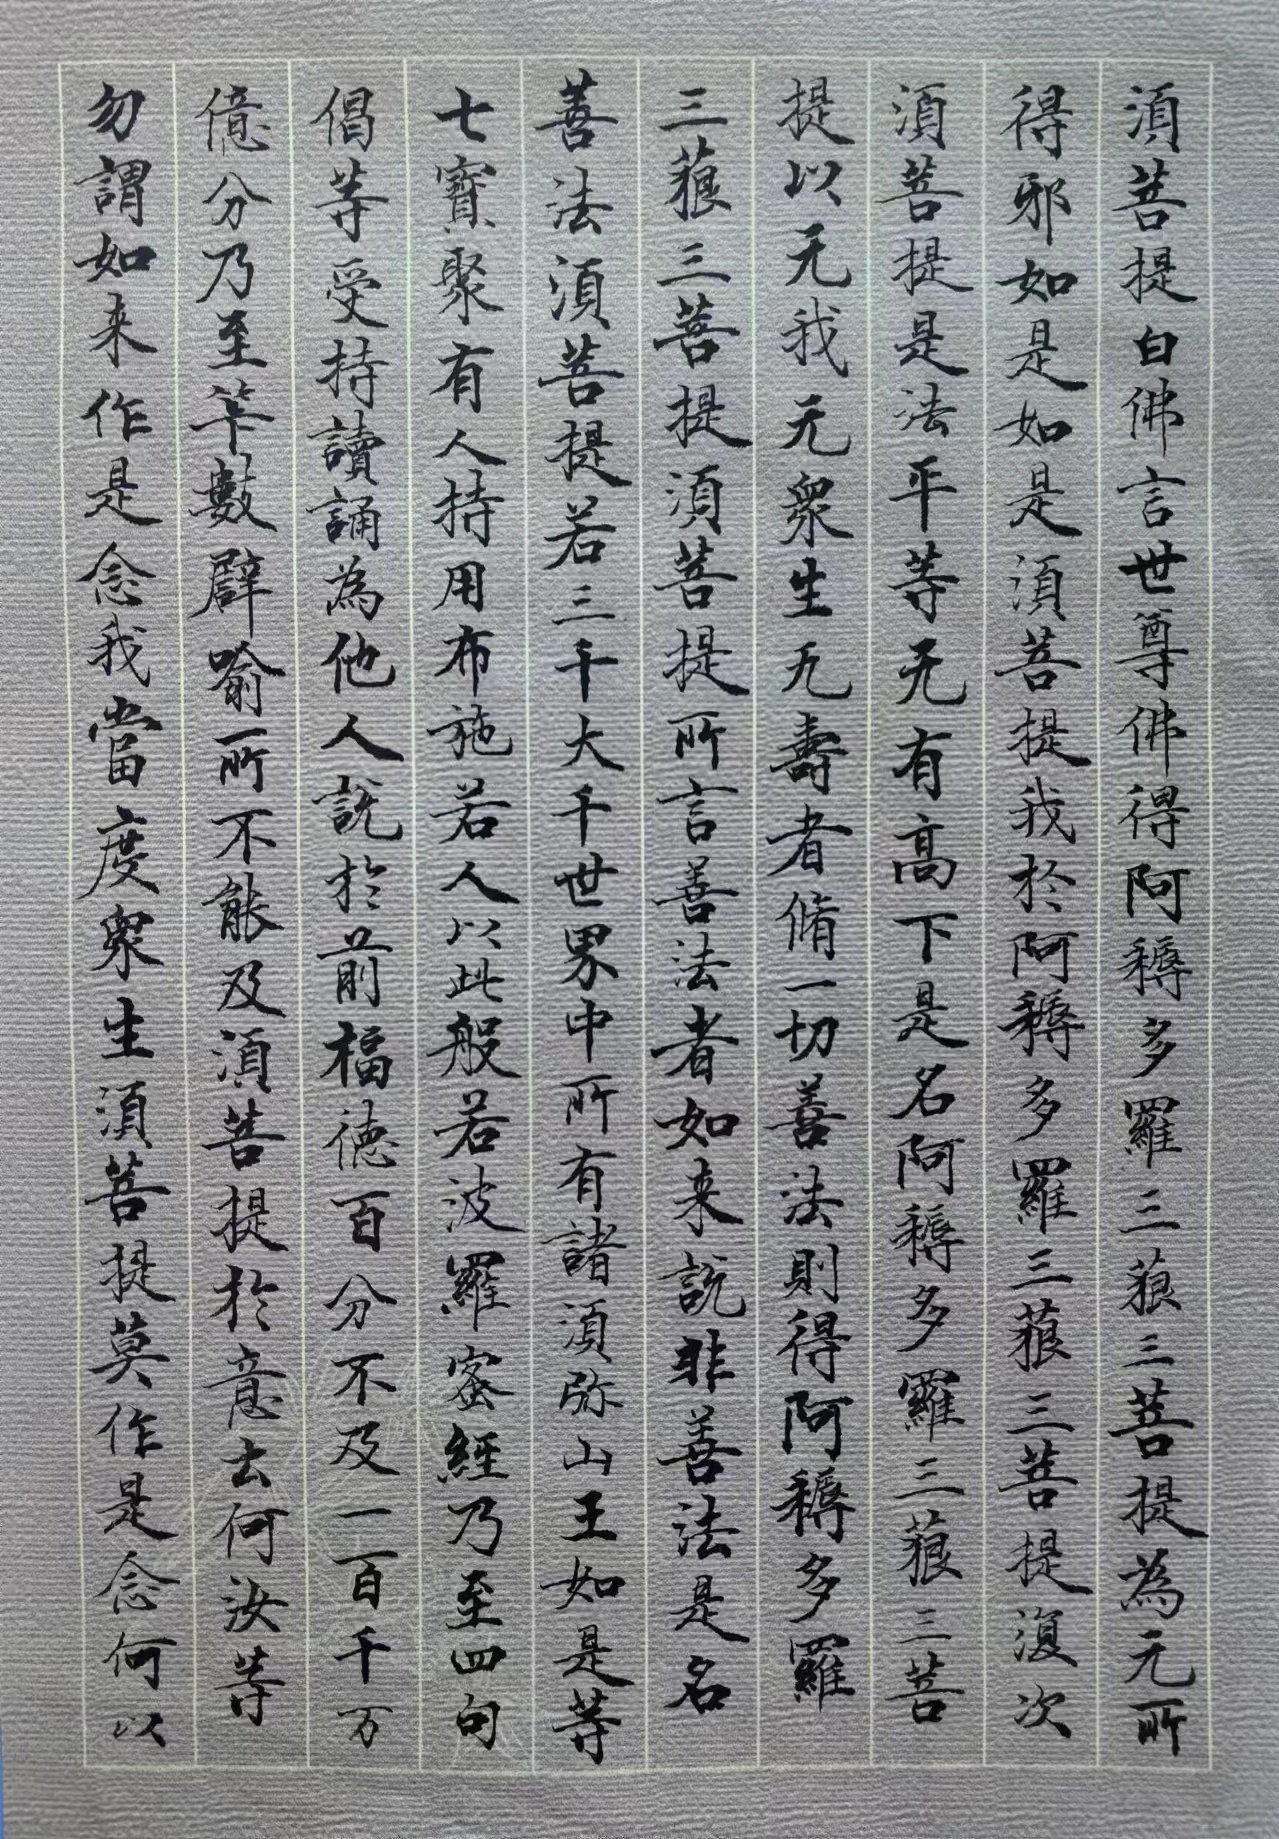 須菩提白佛言世尊佛得阿耨多羅三藐三菩提為无所
得邪如是如是須菩提我於阿耨多羅三藐三菩提復次
須菩提是法平等无有高下是名阿耨多羅三藐三菩
提以无我无眾生无壽者脩一切善法則得阿耨多羅
三藐三菩提須菩提所言善法者如来説非善法是名
善法須菩提若三千大千世界中所有諸須弥山王如是等
七寶聚有人持用布施若人以此般若波羅蜜經乃至四句
偈等受持讀誦為他人説於前福德百分不及一百千万
億分乃至笇數譬喻所不能及須菩提於意云何汝等
勿謂如来作是念我當度眾生須菩提莫作是念何以